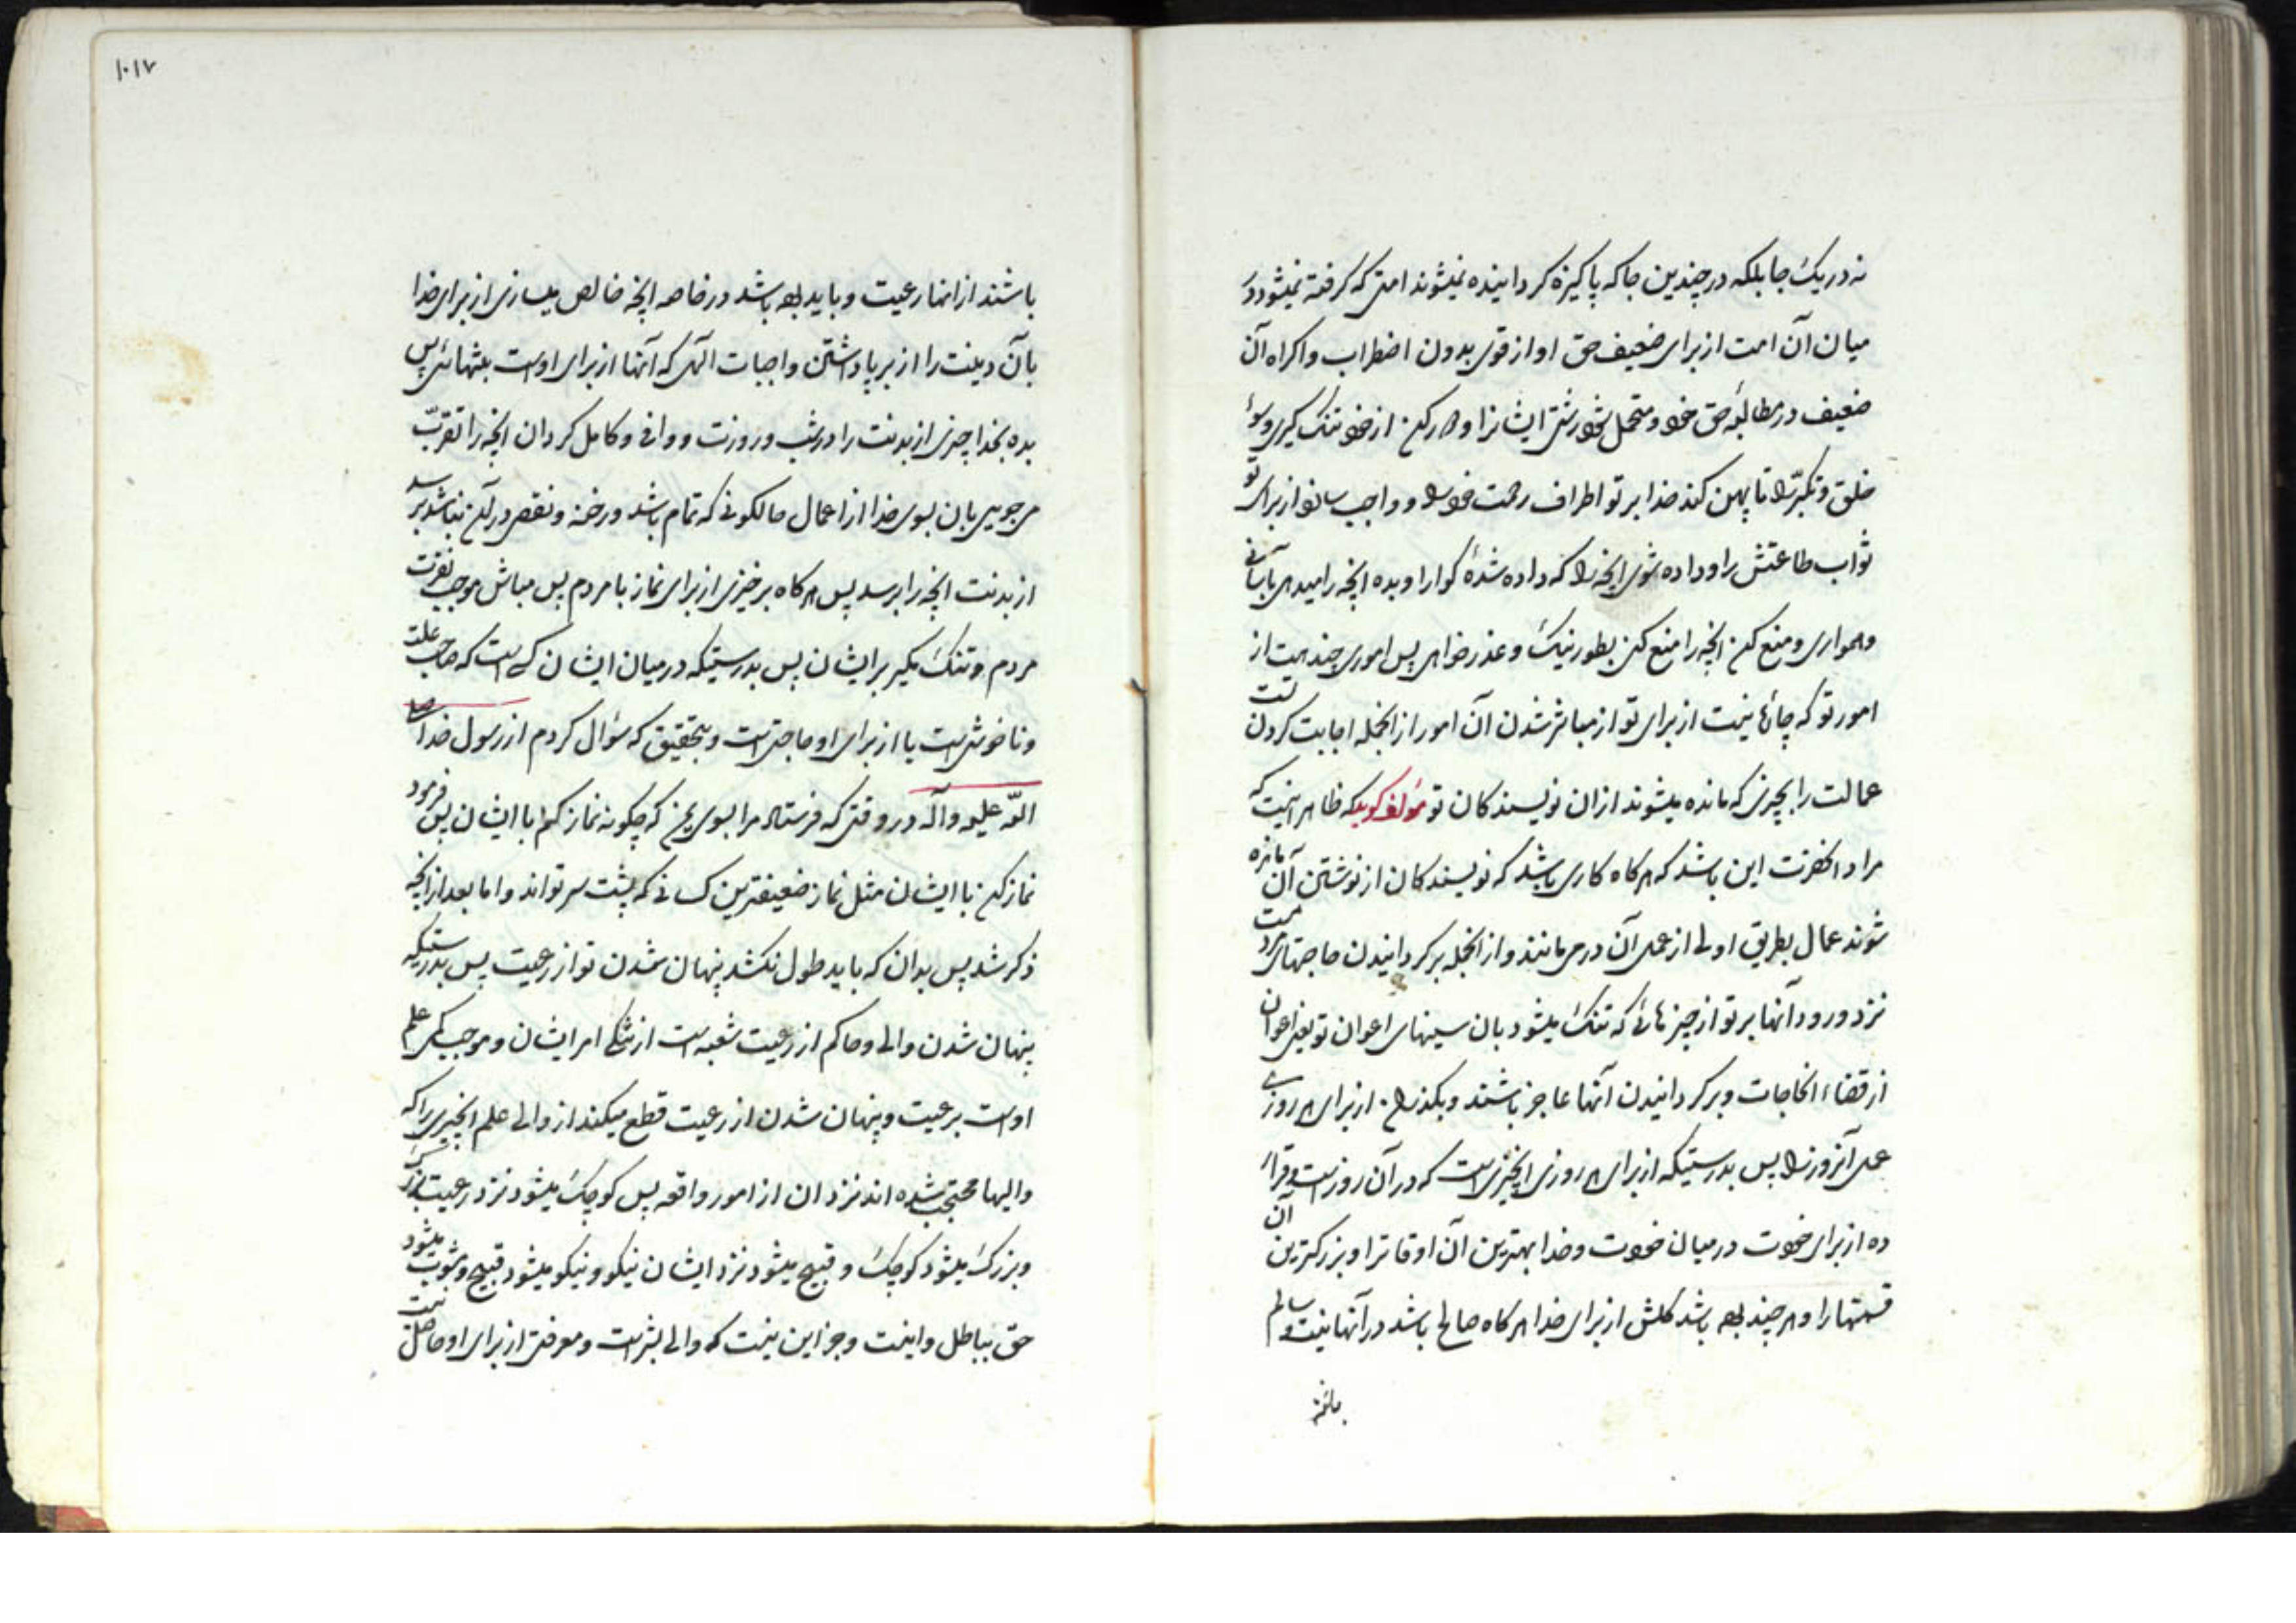 نه در یک جا بلکه در چندین جا که پاکیزه گردانیده نمیشوند امتی که گرفته نمیشود در
میان آن امت از برای ضعیف حق او از قوی بدون اضطراب و اکراه آن
ضعیف در مطالبۀ حق خود و متحمل شو درشتی ایشانرا و دور کن از خود تنک گیری و سوء
خلق و تکبر را تا پهن کند خدا بر تو اطراف رحمت خود را و واجب سازد از برای تو
ثواب طاعتش را و داده شوی انچه را که داده شدۀ گوارا و بده انچه را میدهی بآسانی
و همواری و منع کن انچه را منع کنی بطور نیک و عذر خواهی پس اموری چند هست از
امور تو که چارۀ نیست از برای تو از مباشر شدن آن امور از انجمله اجابت کردن تست
عمالت را بچیزی که مانده میشوند ازان نویسندکان تو مؤلف کوید که ظاهر اینست که
مراد انحضرت این باشد که هرکاه کاری باشد که نویسندکان از نوشتن آن مانده
شوند عمال بطریق اولی از عمل آن در می مانند و از انجمله برکردانیدن حاجتهای مردمست
نزد ورود آنها بر تو از چیزهائی که تنک میشود بان سینهای اعوان تو یعنی اعوان
از قضاء الحاجات و برکردانیدن آنها عاجز باشند و بکذران از برای هر روزی
عمل آنروز را پس بدرستیکه از برای هر روزی انچیزیست که در آن روز است و قرار
ده از برای خودت در میان خودت و خدا بهترین آن اوقاترا و بزرکترین آن
قسمتها را و هر چند بوده باشد کلش از برای خدا هرکاه صالح باشد در آنها نیت و سالم
باشند
۱۰۱۷
باشند از انها رعیت و باید بوده باشد در خاصه انچه خالص میسازی از برای خدا
بآن دینت را از بر پا داشتن واجبات الهی که آنها از برای اوست بتنهائی پس
بده بخدا چیزی از بدنت را در شب و روزت و وافی و کامل کردان انچه را تقرب
می جویی بان بسوی خدا از اعمال حالکونی که تمام باشد و رخنه و نقص در آن نباشد برسد
از بدنت انچه را برسد پس هرکاه برخیزی از برای نماز با مردم پس مباش موجب نفرت
مردم و تنک مکیر بر ایشان پس بدرستیکه در میان ایشان کسی است که صاحب علت
و ناخوشی است یا از برای او حاجتی است و بتحقیق که سؤال کردم از رسول خدا صلی
الله علیه و آله در وقتی که فرستاد مرا بسوی یمن که چکونه نماز کنم با ایشان پس فرمود
نماز کن با ایشان مثل نماز ضعیفترین کسانی که پشت سر تواند و اما بعد از انچه
ذکر شد پس بدان که باید طول نکشد پنهان شدن تو از رعیت پس بدرستیکه
پنهان شدن والی و حاکم از رعیت شعبه است از تنکی امر ایشان و موجب کمی علم
اوست برعیت و پنهان شدن از رعیت قطع میکند از والی علم انچیزی را که
والیها محتجب شده اند نزد ان از امور واقعه پس کوچک میشود نزد رعیت بزرک
و بزرک میشود کوچک و قبیح میشود نزد ایشان نیکو و نیکو میشود قبیح و مشوب میشود
حق بباطل و اینست و جز این نیست که والی بشر است و معرفتی از برای او حاصل نیست